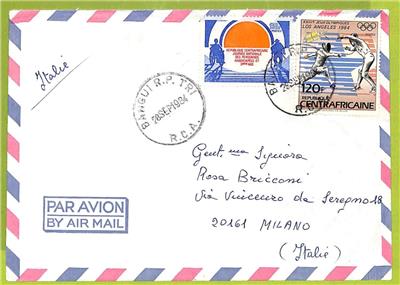 Italie
REPUBLIQUE CENTRAFRICAINE
JOURNEE NATIONALE
DES PERSONNES
HANDICAPEES ET
XXIII JEUX OLYMPIQUES
LOS ANGELES 1984
120F
REPUBLIQUE
CENTRAFRICAINE
BANGUI R.P. TRI
28 SEP 1984
R.C.A.
BANGUI R.P.
28 SEP 1984
R.C.A.
Gent.ma Signora
Rosa Bricconi
Via Vincenzo da Seregno 18
20161 MILANO
(Italie)
PAR AVION
BY AIR MAIL